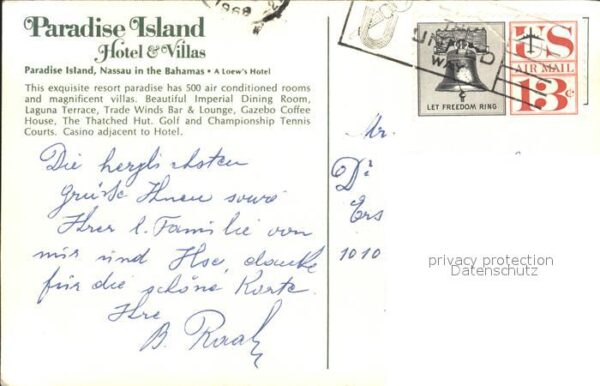 1968
Paradise Island
Hotel & Villas
Paradise Island, Nassau in the Bahamas • A Loew's Hotel
This exquisite resort paradise has 500 air conditioned rooms
and magnificent villas. Beautiful Imperial Dining Room,
Laguna Terrace, Trade Winds Bar & Lounge, Gazebo Coffee
House, The Thatched Hut. Golf and Championship Tennis
Courts. Casino adjacent to Hotel.
Die herzlichsten
Grüße Ihnen sowie
Ihrer l. Familie von
mir und Ilse, danke
für die schöne Karte.
Ihre
B.
LET FREEDOM RING
US
AIR MAIL
13c
Mr.
Dr
Ers
1010
privacy protection
Datenschutz